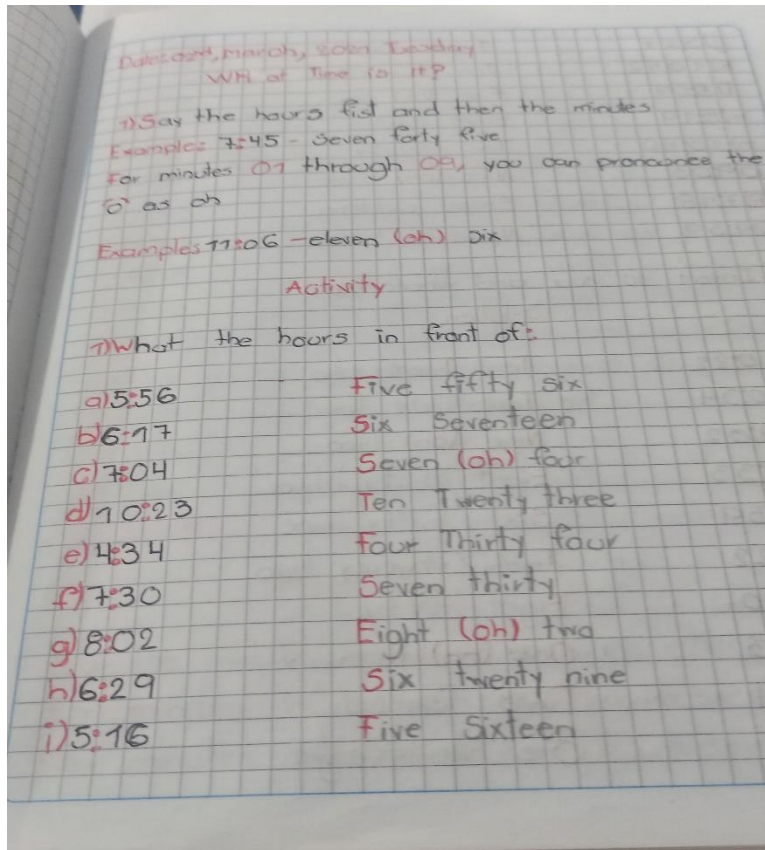 March,
What Time is it?
1) Say the hours fist and then the minutes
Example: 7:45 - Seven forty five
For minutes 01 through 09, you can pronounce the
"o" as oh
Examples 11:06 - eleven (oh) six
Activity
1) What the hours in front of:
a) 5:56 Five fifty six
b) 6:17 Six Seventeen
c) 7:04 Seven (oh) four
d) 10:23 Ten Twenty three
e) 4:34 Four Thirty four
f) 7:30 Seven thirty
g) 8:02 Eight (oh) two
h) 6:29 Six twenty nine
i) 5:16 Five Sixteen